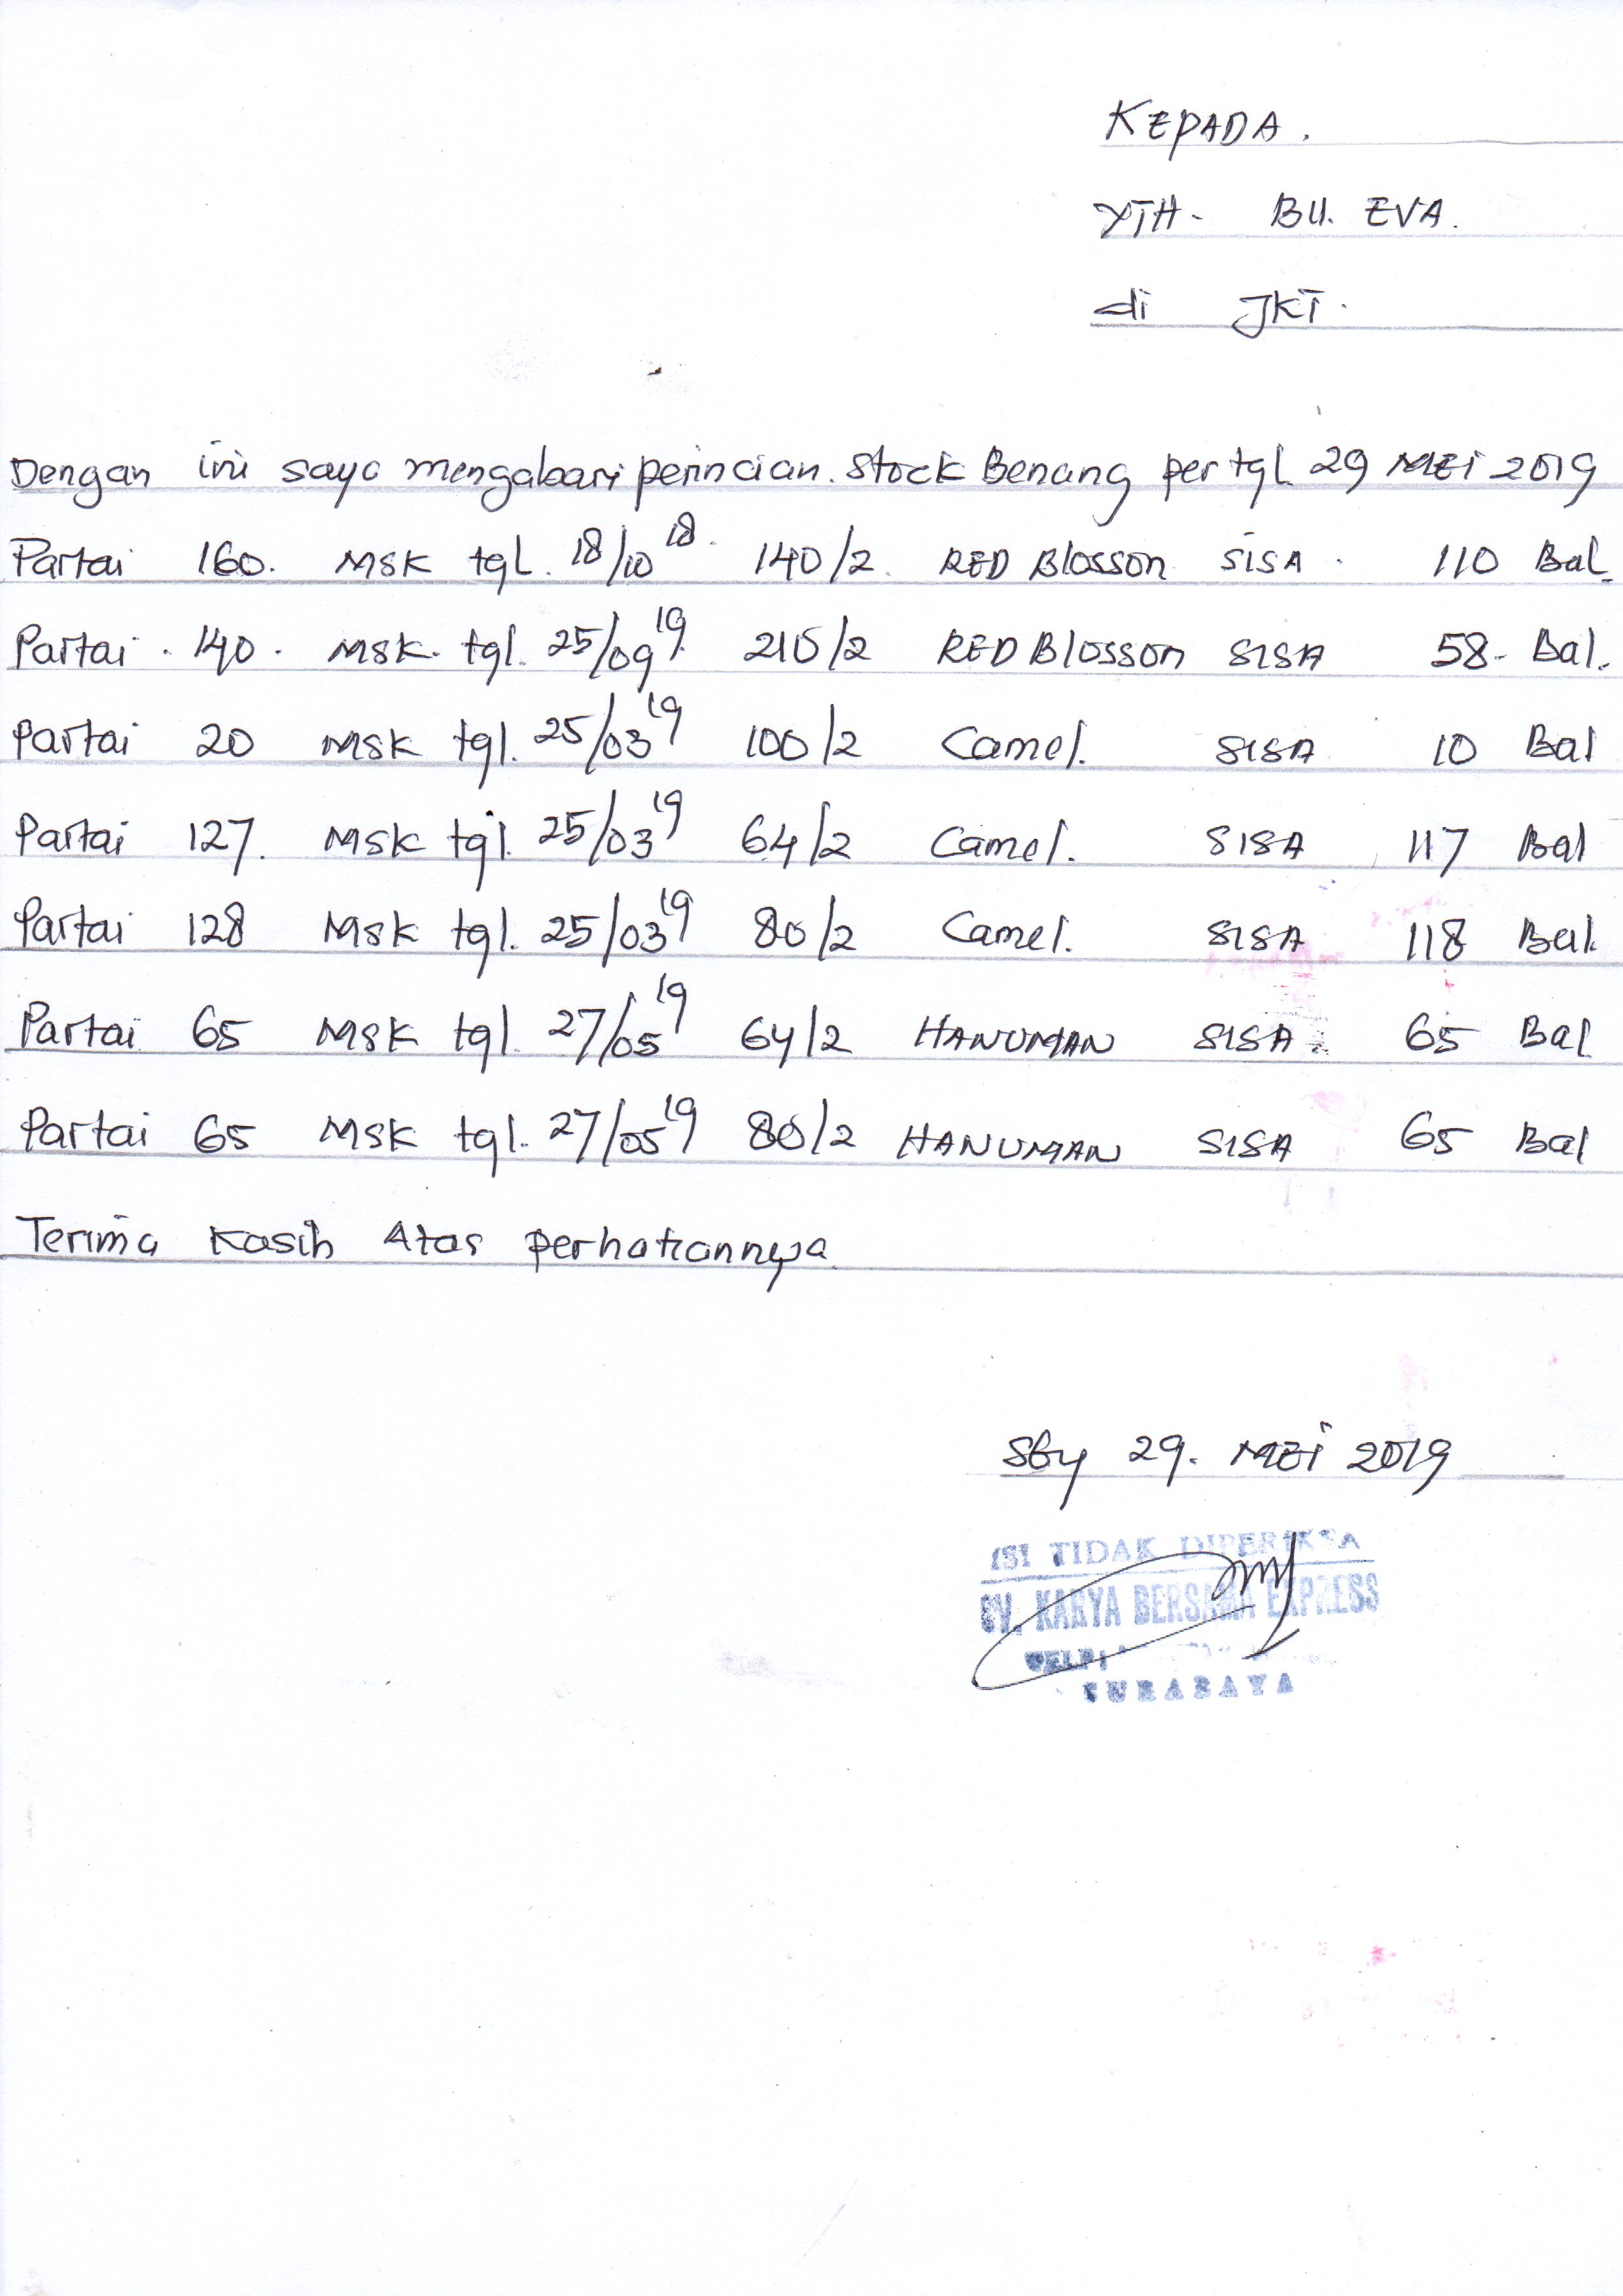 KEPADA.
YTH- BU. EVA.
di JKT.
Dengan ini saya mengabari perincian. stock Benang per tgl. 29 MEI 2019
Partai 160. MSK tgl. 18/10 18. 140/2. RED Blosson SISA. 110 Bal.
Partai. 140. MSK. tgl. 25/09 19. 210/2 RED Blosson SISA 58- Bal.
Partai 20 MSK tgl. 25/03 19 100/2 Camel. SISA 10 Bal
Partai 127. MSK tgl. 25/03 19 64/2 Camel. SISA 117 Bal
Partai 128 MSK tgl. 25/03 19 80/2 Camel. SISA 118 Bal.
Partai 65 MSK tgl. 27/05 19 64/2 HANUMAN SISA. 65 Bal
Partai 65 MSK tgl. 27/05 19 80/2 HANUMAN SISA 65 Bal
Terima Kasih Atas perhatiannya.
Sby 29. MEI 2019
ISI TIDAK DIPERIKSA
CV. KARYA BERSAMA EXPRESS
TELP:
SURABAYA